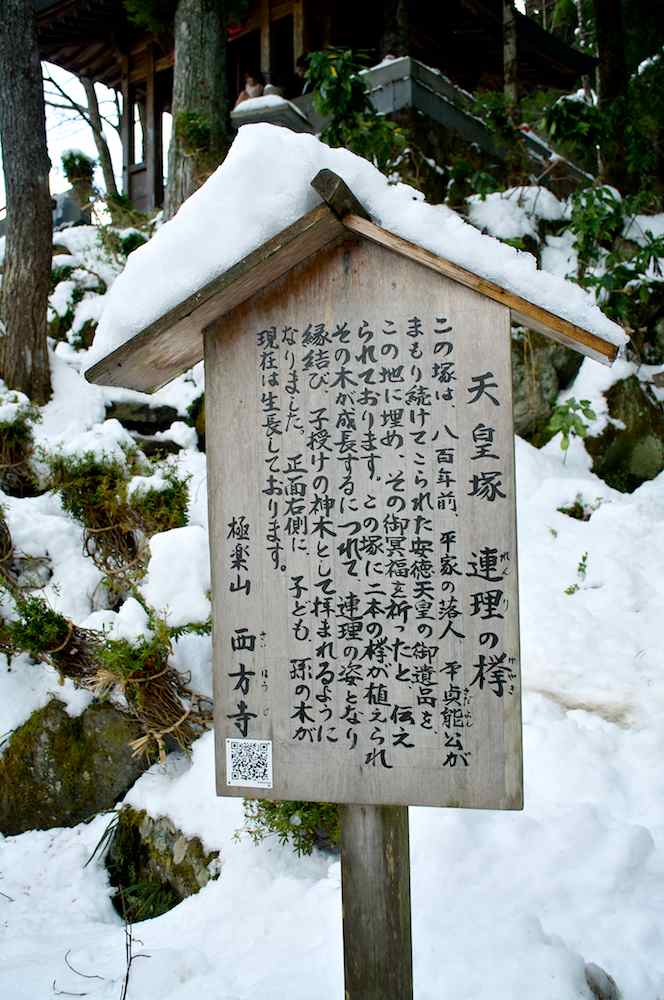 天皇塚　連理の欅
れんり
けやき
この塚は、八百年前、平家の落人　平貞能公が
さだよし
まもり続けてこられた安徳天皇の御遺品を、
この地に埋め、その御冥福を祈ったと、伝え
られております。この塚に二本の欅が植えられ
その木が成長するにつれて、連理の姿となり
縁結び、子授けの神木として拝まれるように
なりました。正面右側に、子ども、孫の木が
現在は生長しております。
極楽山　西方寺
さいほうじ